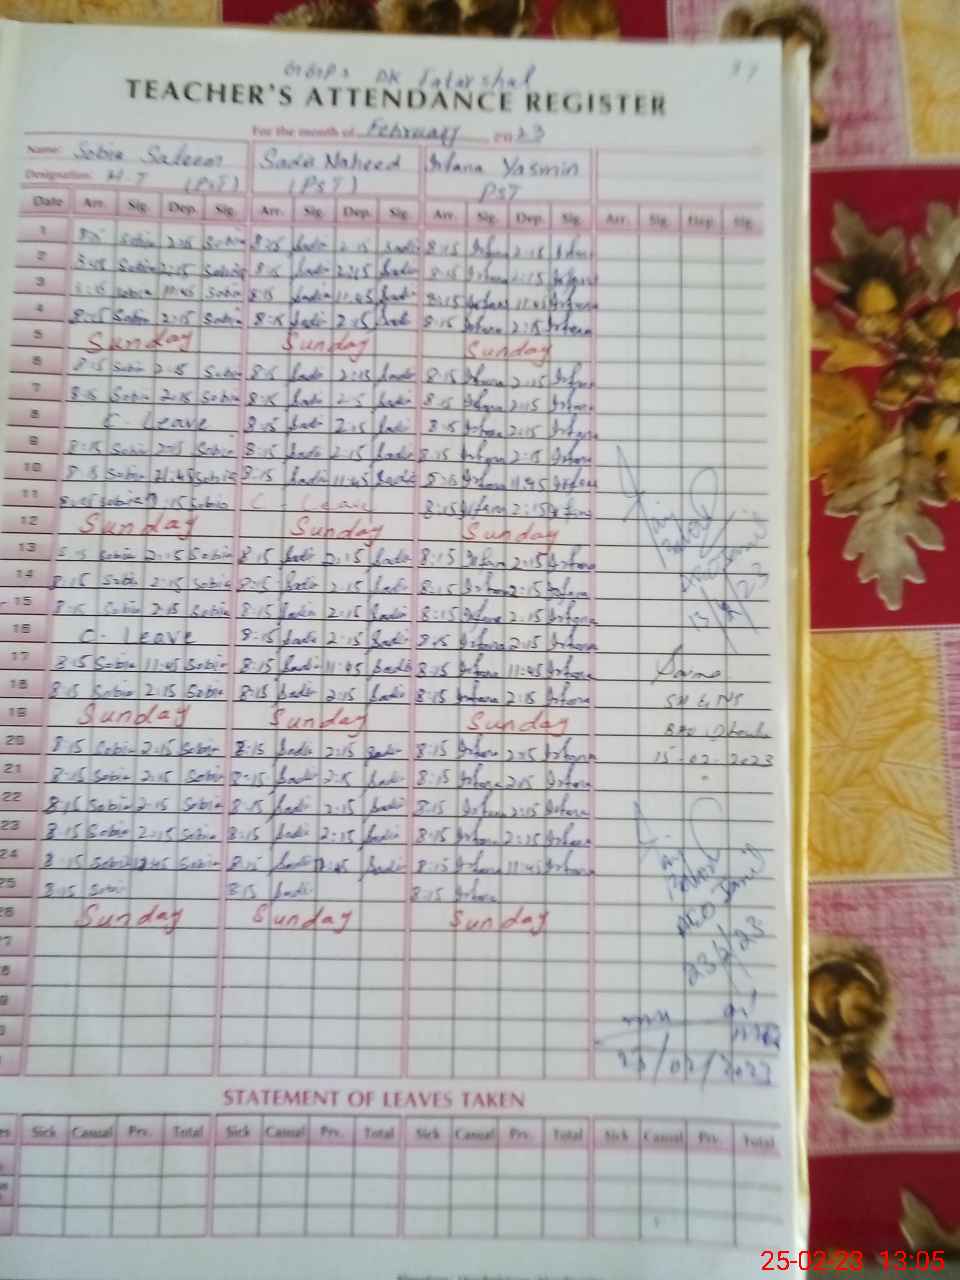 GGPS DK
TEACHER'S ATTENDANCE REGISTER
For the month of February 2023
Name: Sobia Saleem Sadia Naheed Irfana Yasmin
Designation: H.T (PST) (PST) PST
Date Arr. Sig. Dep. Sig. Arr. Sig. Dep. Sig. Arr. Sig. Dep. Sig. Arr. Sig. Dep. Sig.
1 8:15 Sobia 2:15 Sobia 8:15 Sadia 2:15 Sadia 8:15 Irfana 2:15 Irfana
2 8:15 Sobia 2:15 Sobia 8:15 Sadia 2:15 Sadia 8:15 Irfana 2:15 Irfana
3 8:15 Sobia 11:45 Sobia 8:15 Sadia 11:45 Sadia 8:15 Irfana 11:45 Irfana
4 8:15 Sobia 2:15 Sobia 8:15 Sadia 2:15 Sadia 8:15 Irfana 2:15 Irfana
5 Sunday Sunday Sunday
6 8:15 Sobia 2:15 Sobia 8:15 Sadia 2:15 Sadia 8:15 Irfana 2:15 Irfana
7 8:15 Sobia 2:15 Sobia 8:15 Sadia 2:15 Sadia 8:15 Irfana 2:15 Irfana
8 C. Leave 8:15 Sadia 2:15 Sadia 8:15 Irfana 2:15 Irfana
9 8:15 Sobia 2:15 Sobia 8:15 Sadia 2:15 Sadia 8:15 Irfana 2:15 Irfana
10 8:15 Sobia 11:45 Sobia 8:15 Sadia 11:45 Sadia 8:15 Irfana 11:45 Irfana
11 8:15 Sobia 2:15 Sobia C. Leave 8:15 Irfana 2:15 Irfana
12 Sunday Sunday Sunday
13 8:15 Sobia 2:15 Sobia 8:15 Sadia 2:15 Sadia 8:15 Irfana 2:15 Irfana
14 8:15 Sobia 2:15 Sobia 8:15 Sadia 2:15 Sadia 8:15 Irfana 2:15 Irfana
15 8:15 Sobia 2:15 Sobia 8:15 Sadia 2:15 Sadia 8:15 Irfana 2:15 Irfana
16 C. Leave 8:15 Sadia 2:15 Sadia 8:15 Irfana 2:15 Irfana
17 8:15 Sobia 11:45 Sobia 8:15 Sadia 11:45 Sadia 8:15 Irfana 11:45 Irfana
18 8:15 Sobia 2:15 Sobia 8:15 Sadia 2:15 Sadia 8:15 Irfana 2:15 Irfana
19 Sunday Sunday Sunday
20 8:15 Sobia 2:15 Sobia 8:15 Sadia 2:15 Sadia 8:15 Irfana 2:15 Irfana
15-02-2023
21 8:15 Sobia 2:15 Sobia 8:15 Sadia 2:15 Sadia 8:15 Irfana 2:15 Irfana
22 8:15 Sobia 2:15 Sobia 8:15 Sadia 2:15 Sadia 8:15 Irfana 2:15 Irfana
23 8:15 Sobia 2:15 Sobia 8:15 Sadia 2:15 Sadia 8:15 Irfana 2:15 Irfana
24 8:15 Sobia 11:45 Sobia 8:15 Sadia 11:45 Sadia 8:15 Irfana 11:45 Irfana
25 8:15 Sobia 8:15 Sadia 8:15 Irfana
26 Sunday Sunday Sunday
23/2/23
STATEMENT OF LEAVES TAKEN
Sick Casual Prv. Total Sick Casual Prv. Total Sick Casual Prv. Total Sick Casual Prv. Total
25-02-23 13:05